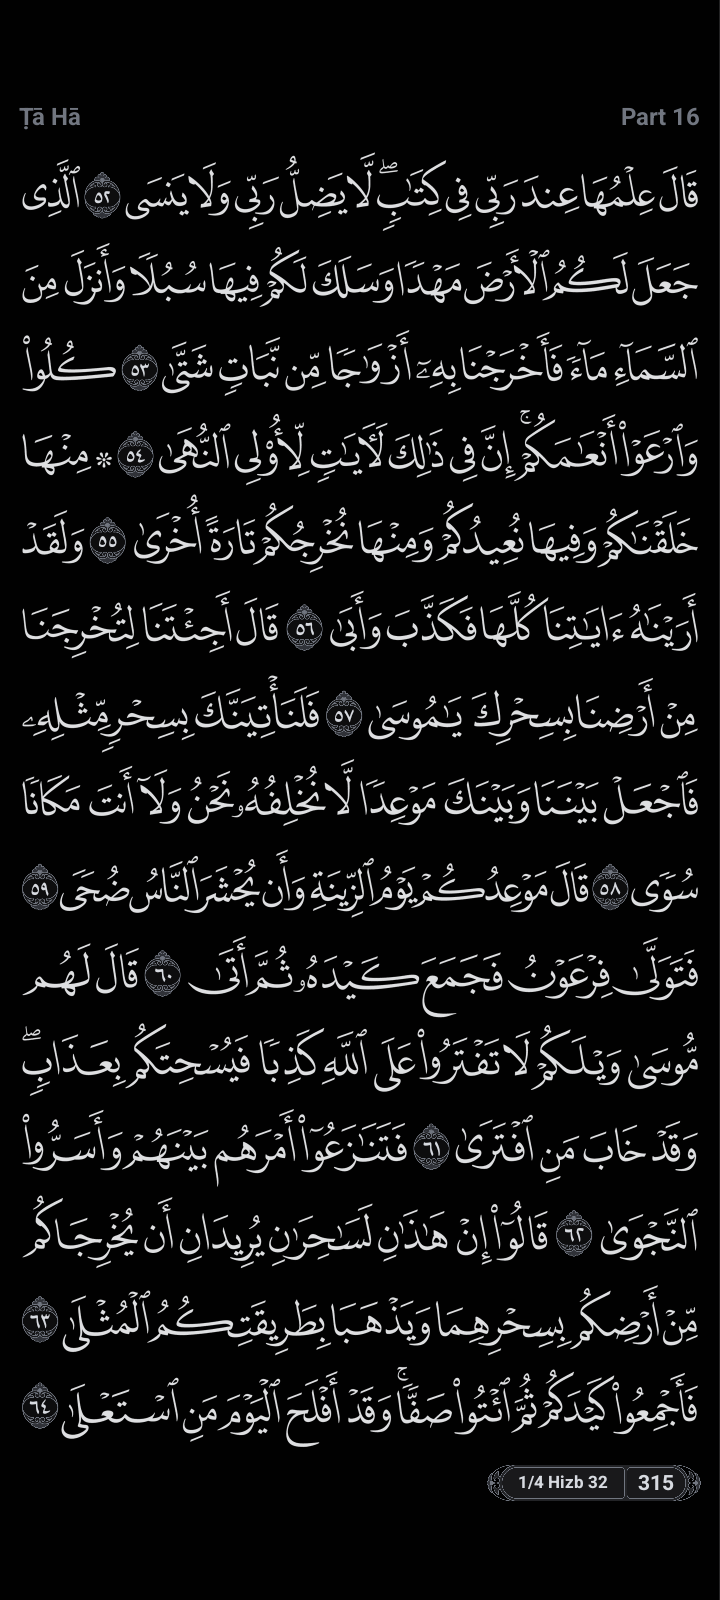 Ṭā Hā
Part 16
قَالَ عِلْمُهَا عِندَ رَبِّى فِى كِتَٰبٍۢ ۖ لَّا يَضِلُّ رَبِّى وَلَا يَنسَى ٥٢ ٱلَّذِى
جَعَلَ لَكُمُ ٱلْأَرْضَ مَهْدًۭا وَسَلَكَ لَكُمْ فِيهَا سُبُلًۭا وَأَنزَلَ مِنَ
ٱلسَّمَآءِ مَآءًۭ فَأَخْرَجْنَا بِهِۦٓ أَزْوَٰجًۭا مِّن نَّبَاتٍۢ شَتَّىٰ ٥٣ كُلُوا۟
وَٱرْعَوْا۟ أَنْعَٰمَكُمْ ۗ إِنَّ فِى ذَٰلِكَ لَـَٔايَٰتٍۢ لِّأُو۟لِى ٱلنُّهَىٰ ٥٤ ۞ مِنْهَا
خَلَقْنَٰكُمْ وَفِيهَا نُعِيدُكُمْ وَمِنْهَا نُخْرِجُكُمْ تَارَةً أُخْرَىٰ ٥٥ وَلَقَدْ
أَرَيْنَٰهُ ءَايَٰتِنَا كُلَّهَا فَكَذَّبَ وَأَبَىٰ ٥٦ قَالَ أَجِئْتَنَا لِتُخْرِجَنَا
مِنْ أَرْضِنَا بِسِحْرِكَ يَٰمُوسَىٰ ٥٧ فَلَنَأْتِيَنَّكَ بِسِحْرٍۢ مِّثْلِهِۦ
فَٱجْعَلْ بَيْنَنَا وَبَيْنَكَ مَوْعِدًۭا لَّا نُخْلِفُهُۥ نَحْنُ وَلَآ أَنتَ مَكَانًۭا
سُوًۭى ٥٨ قَالَ مَوْعِدُكُمْ يَوْمُ ٱلزِّينَةِ وَأَن يُحْشَرَ ٱلنَّاسُ ضُحًۭى ٥٩
فَتَوَلَّىٰ فِرْعَوْنُ فَجَمَعَ كَيْدَهُۥ ثُمَّ أَتَىٰ ٦٠ قَالَ لَهُم
مُّوسَىٰ وَيْلَكُمْ لَا تَفْتَرُوا۟ عَلَى ٱللَّهِ كَذِبًۭا فَيُسْحِتَكُم بِعَذَابٍۢ ۖ
وَقَدْ خَابَ مَنِ ٱفْتَرَىٰ ٦١ فَتَنَٰزَعُوٓا۟ أَمْرَهُم بَيْنَهُمْ وَأَسَرُّوا۟
ٱلنَّجْوَىٰ ٦٢ قَالُوٓا۟ إِنْ هَٰذَٰنِ لَسَٰحِرَٰنِ يُرِيدَانِ أَن يُخْرِجَاكُم
مِّنْ أَرْضِكُم بِسِحْرِهِمَا وَيَذْهَبَا بِطَرِيقَتِكُمُ ٱلْمُثْلَىٰ ٦٣
فَأَجْمِعُوا۟ كَيْدَكُمْ ثُمَّ ٱئْتُوا۟ صَفًّۭا ۚ وَقَدْ أَفْلَحَ ٱلْيَوْمَ مَنِ ٱسْتَعْلَىٰ ٦٤
1/4 Hizb 32
315